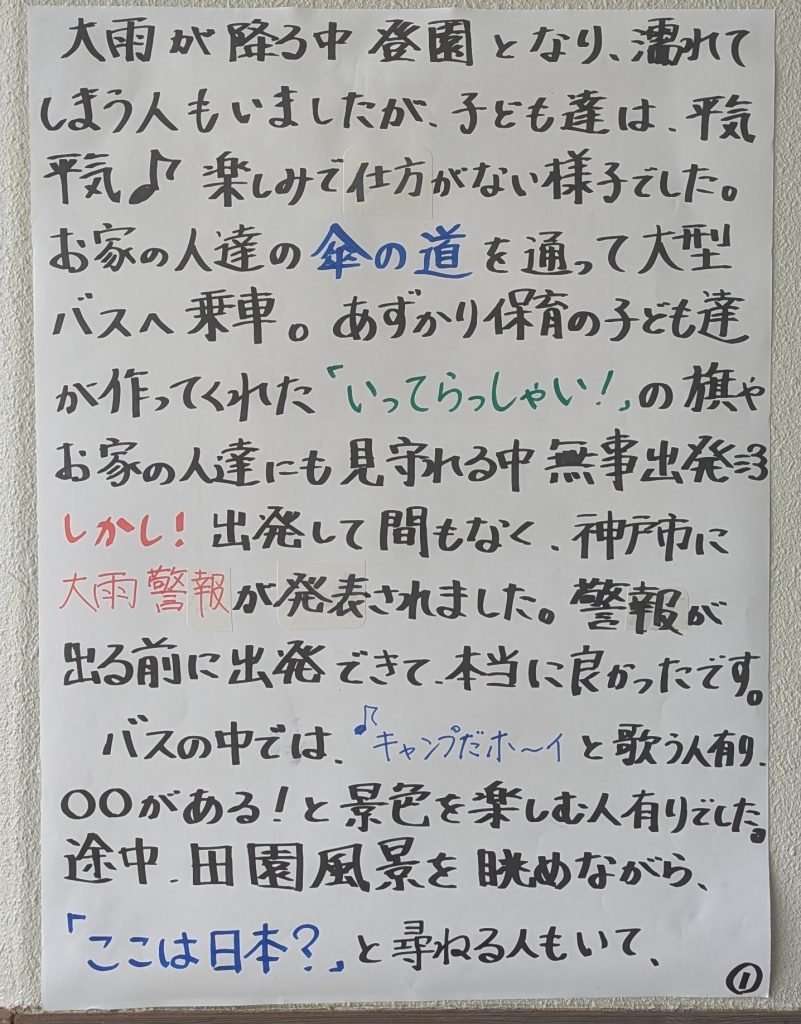 大雨が降る中登園となり、濡れて
しまう人もいましたが、子ども達は、平気
平気♪楽しみで仕方がない様子でした。
お家の人達の傘の道を通って大型
バスへ乗車。あずかり保育の子ども達
が作ってくれた「いってらっしゃい！」の旗や
お家の人達にも見守れる中無事出発
しかし！出発して間もなく、神戸市に
大雨警報が発表されました。警報が
出る前に出発できて、本当に良かったです。
バスの中では、♪キャンプだホ〜イと歌う人有り、
〇〇がある！と景色を楽しむ人有りでした。
途中、田園風景を眺めながら、
「ここは日本？」と尋ねる人もいて、
①